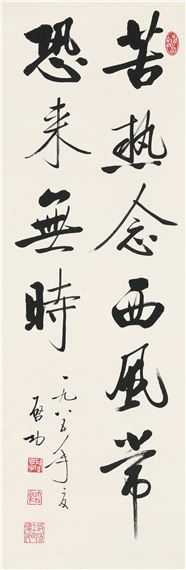 苦熱念西風常
恐来無時
一九八五年夏
啓功